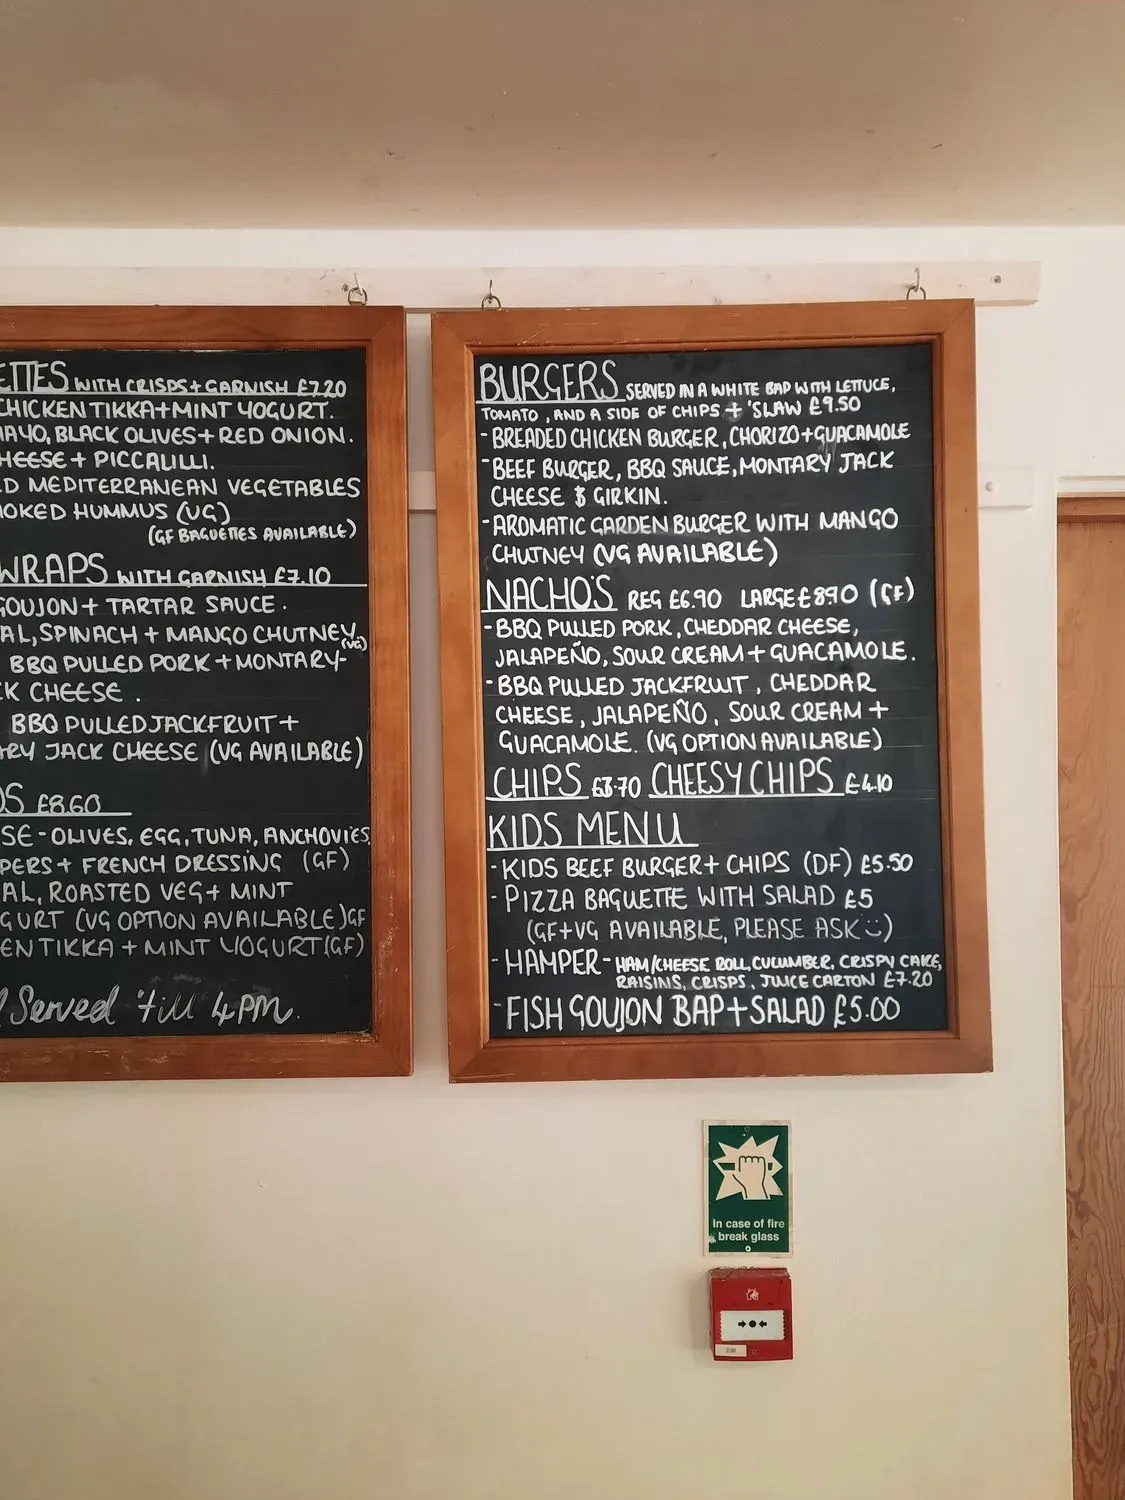 ETTES WITH CRISPS + GARNISH £7.20
CHICKEN TIKKA + MINT YOGURT.
MAYO, BLACK OLIVES + RED ONION.
HEESE + PICCALILLI.
D MEDITERRANEAN VEGETABLES
MOKED HUMMUS (VG)
(GF BAGUETTES AVAILABLE)
WRAPS WITH GARNISH £7.10
GOUJON + TARTAR SAUCE.
AL, SPINACH + MANGO CHUTNEY (VG)
BBQ PULLED PORK + MONTARY-
CK CHEESE.
BBQ PULLED JACKFRUIT +
ARY JACK CHEESE (VG AVAILABLE)
DS £8.60
SE - OLIVES, EGG, TUNA, ANCHOVIES,
PERS + FRENCH DRESSING (GF)
AL, ROASTED VEG + MINT
GURT (VG OPTION AVAILABLE) GF
EN TIKKA + MINT YOGURT (GF)
Served 'till 4PM.
BURGERS SERVED IN A WHITE BAP WITH LETTUCE,
TOMATO, AND A SIDE OF CHIPS + 'SLAW £9.50
- BREADED CHICKEN BURGER, CHORIZO + GUACAMOLE
- BEEF BURGER, BBQ SAUCE, MONTARY JACK
CHEESE & GIRKIN.
- AROMATIC GARDEN BURGER WITH MANGO
CHUTNEY (VG AVAILABLE)
NACHO'S REG £6.90 LARGE £8.90 (GF)
- BBQ PULLED PORK, CHEDDAR CHEESE,
JALAPEÑO, SOUR CREAM + GUACAMOLE.
- BBQ PULLED JACKFRUIT, CHEDDAR
CHEESE, JALAPEÑO, SOUR CREAM +
GUACAMOLE. (VG OPTION AVAILABLE)
CHIPS £3.70 CHEESY CHIPS £4.10
KIDS MENU
- KIDS BEEF BURGER + CHIPS (DF) £5.50
- PIZZA BAGUETTE WITH SALAD £5
(GF + VG AVAILABLE, PLEASE ASK)
- HAMPER - HAM/CHEESE ROLL, CUCUMBER, CRISPY CAKE,
RAISINS, CRISPS, JUICE CARTON £7.20
- FISH GOUJON BAP + SALAD £5.00
In case of fire
break glass